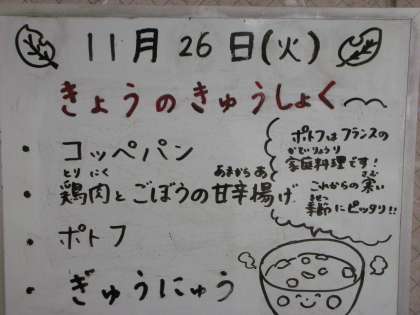 11月 26日(火)
きょうのきゅうしょく〜
・ コッペパン
とり にく あまから あ
・ 鶏肉とごぼうの甘辛揚げ
・ ポトフ
・ ぎゅうにゅう
ポトフはフランスの
かていりょうり
家庭料理です!
さむ
これからの寒い
きせつ
季節にピッタリ!!